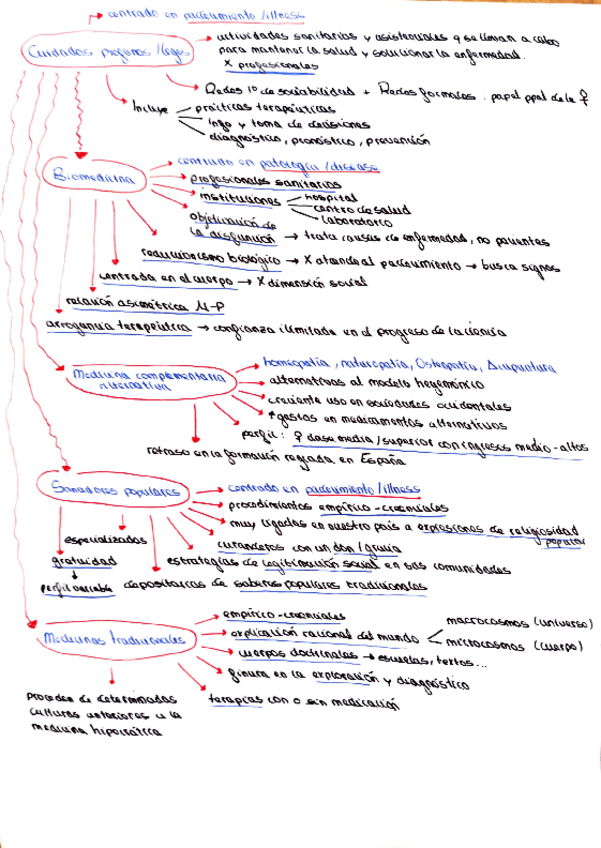 centrado en padecimiento/illness
Cuidados profanos/legos
actividades sanitarias y asistenciales q se llevan a cabo
para mantener la salud y solucionar la enfermedad.
X profesionales
Redes 1º de sociabilidad + Redes formales. papel ppal de la ♀
Incluye
prácticas terapéuticas
info y toma de decisiones
diagnóstico, pronóstico, prevención
Biomedicina
centrado en patología/disease
profesionales sanitarios
instituciones
hospital
centro de salud
laboratorio
objetivación de
la disfunción → trata causas de enfermedad, no pacientes
reduccionismo biológico → X atiende al padecimiento → busca signos
centrada en el cuerpo → X dimensión social
relación asimétrica M-P
arrogancia terapéutica → confianza ilimitada en el progreso de la ciencia
Medicina complementaria
alternativa
homeopatía, naturopatía, Osteopatía, Acupuntura
alternativas al modelo hegemónico
creciente uso en sociedades occidentales
↑ gastos en medicamentos alternativos
perfil: ♀ clase media/superior con ingresos medio-altos
retraso en la formación reglada en España
Sanadores populares
centrado en padecimiento/illness
procedimientos empírico-creenciales
muy ligadas en nuestro país a expresiones de religiosidad
popular
especializados
curanderos con un don/gracia
gratuidad
estrategias de legitimación social en sus comunidades
perfil variable
depositarios de saberes populares tradicionales
Medicinas tradicionales
empírico-creenciales
explicación racional del mundo
macrocosmos (universo)
microcosmos (cuerpo)
cuerpos doctrinales → escuelas, textos...
finura en la exploración y diagnóstico
terapias con o sin medicación
Proceden de determinadas
culturas anteriores a la
medicina hipocrática